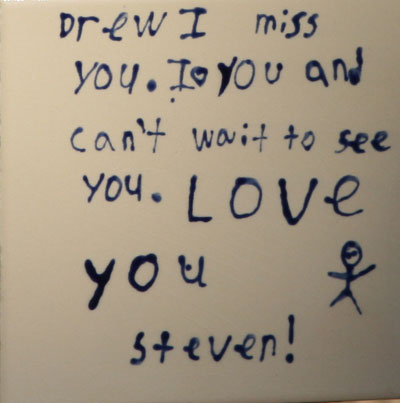 Drew I miss
you. I♥you and
can't wait to see
you. LOVe
you
steven!